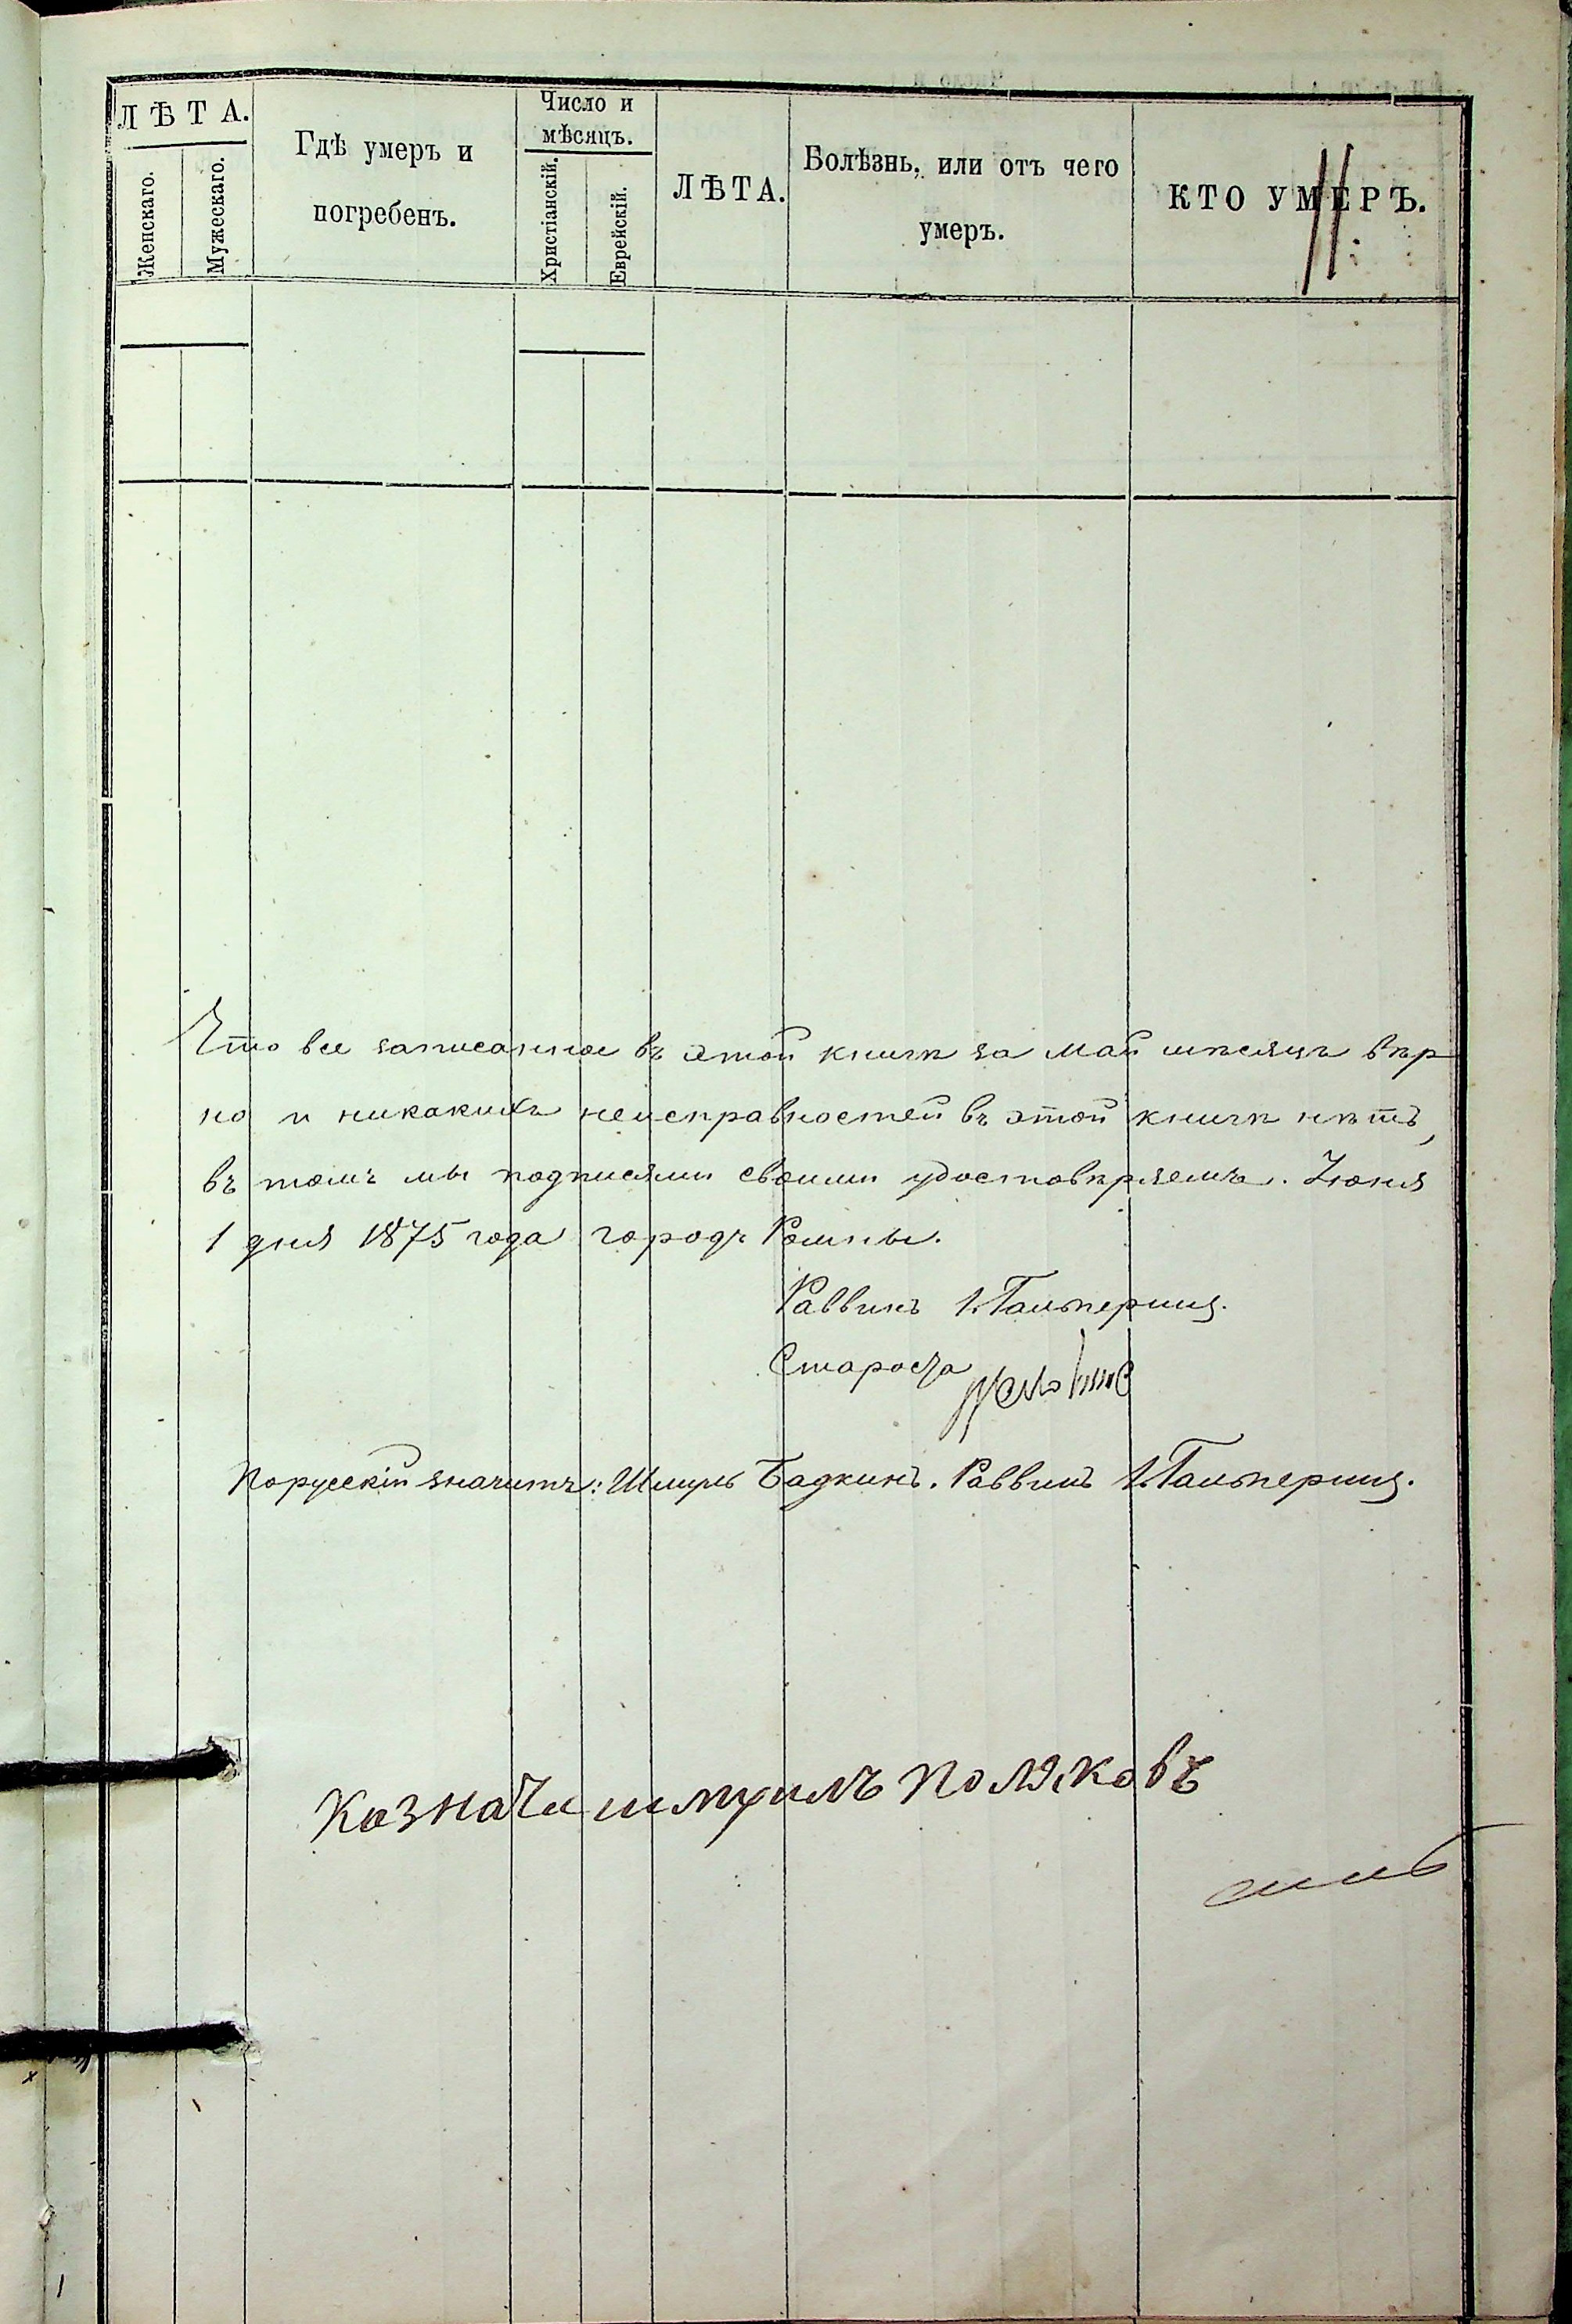 ЛѢТА.
Женскаго.
Мужескаго.
Гдѣ умеръ и
погребенъ.
Число и
мѣсяцъ.
Христіанскій.
Еврейскій.
ЛѢТА.
Болѣзнь, или отъ чего
умеръ.
КТО УМЕРЪ.
Что все записанное въ этой книгѣ за май мѣсяцъ вѣр
но и никакихъ неисправностей въ этой книгѣ нѣтъ,
въ томъ мы подписями своими удостовѣряемъ. Іюня
1 дня 1875 года городъ Ромны.
Раввинъ І. Гальперинъ.
Староста
Порусскій значитъ: Шмуль Бадкинъ. Раввинъ І. Гальперинъ.
Казначи шмуилъ поляковъ